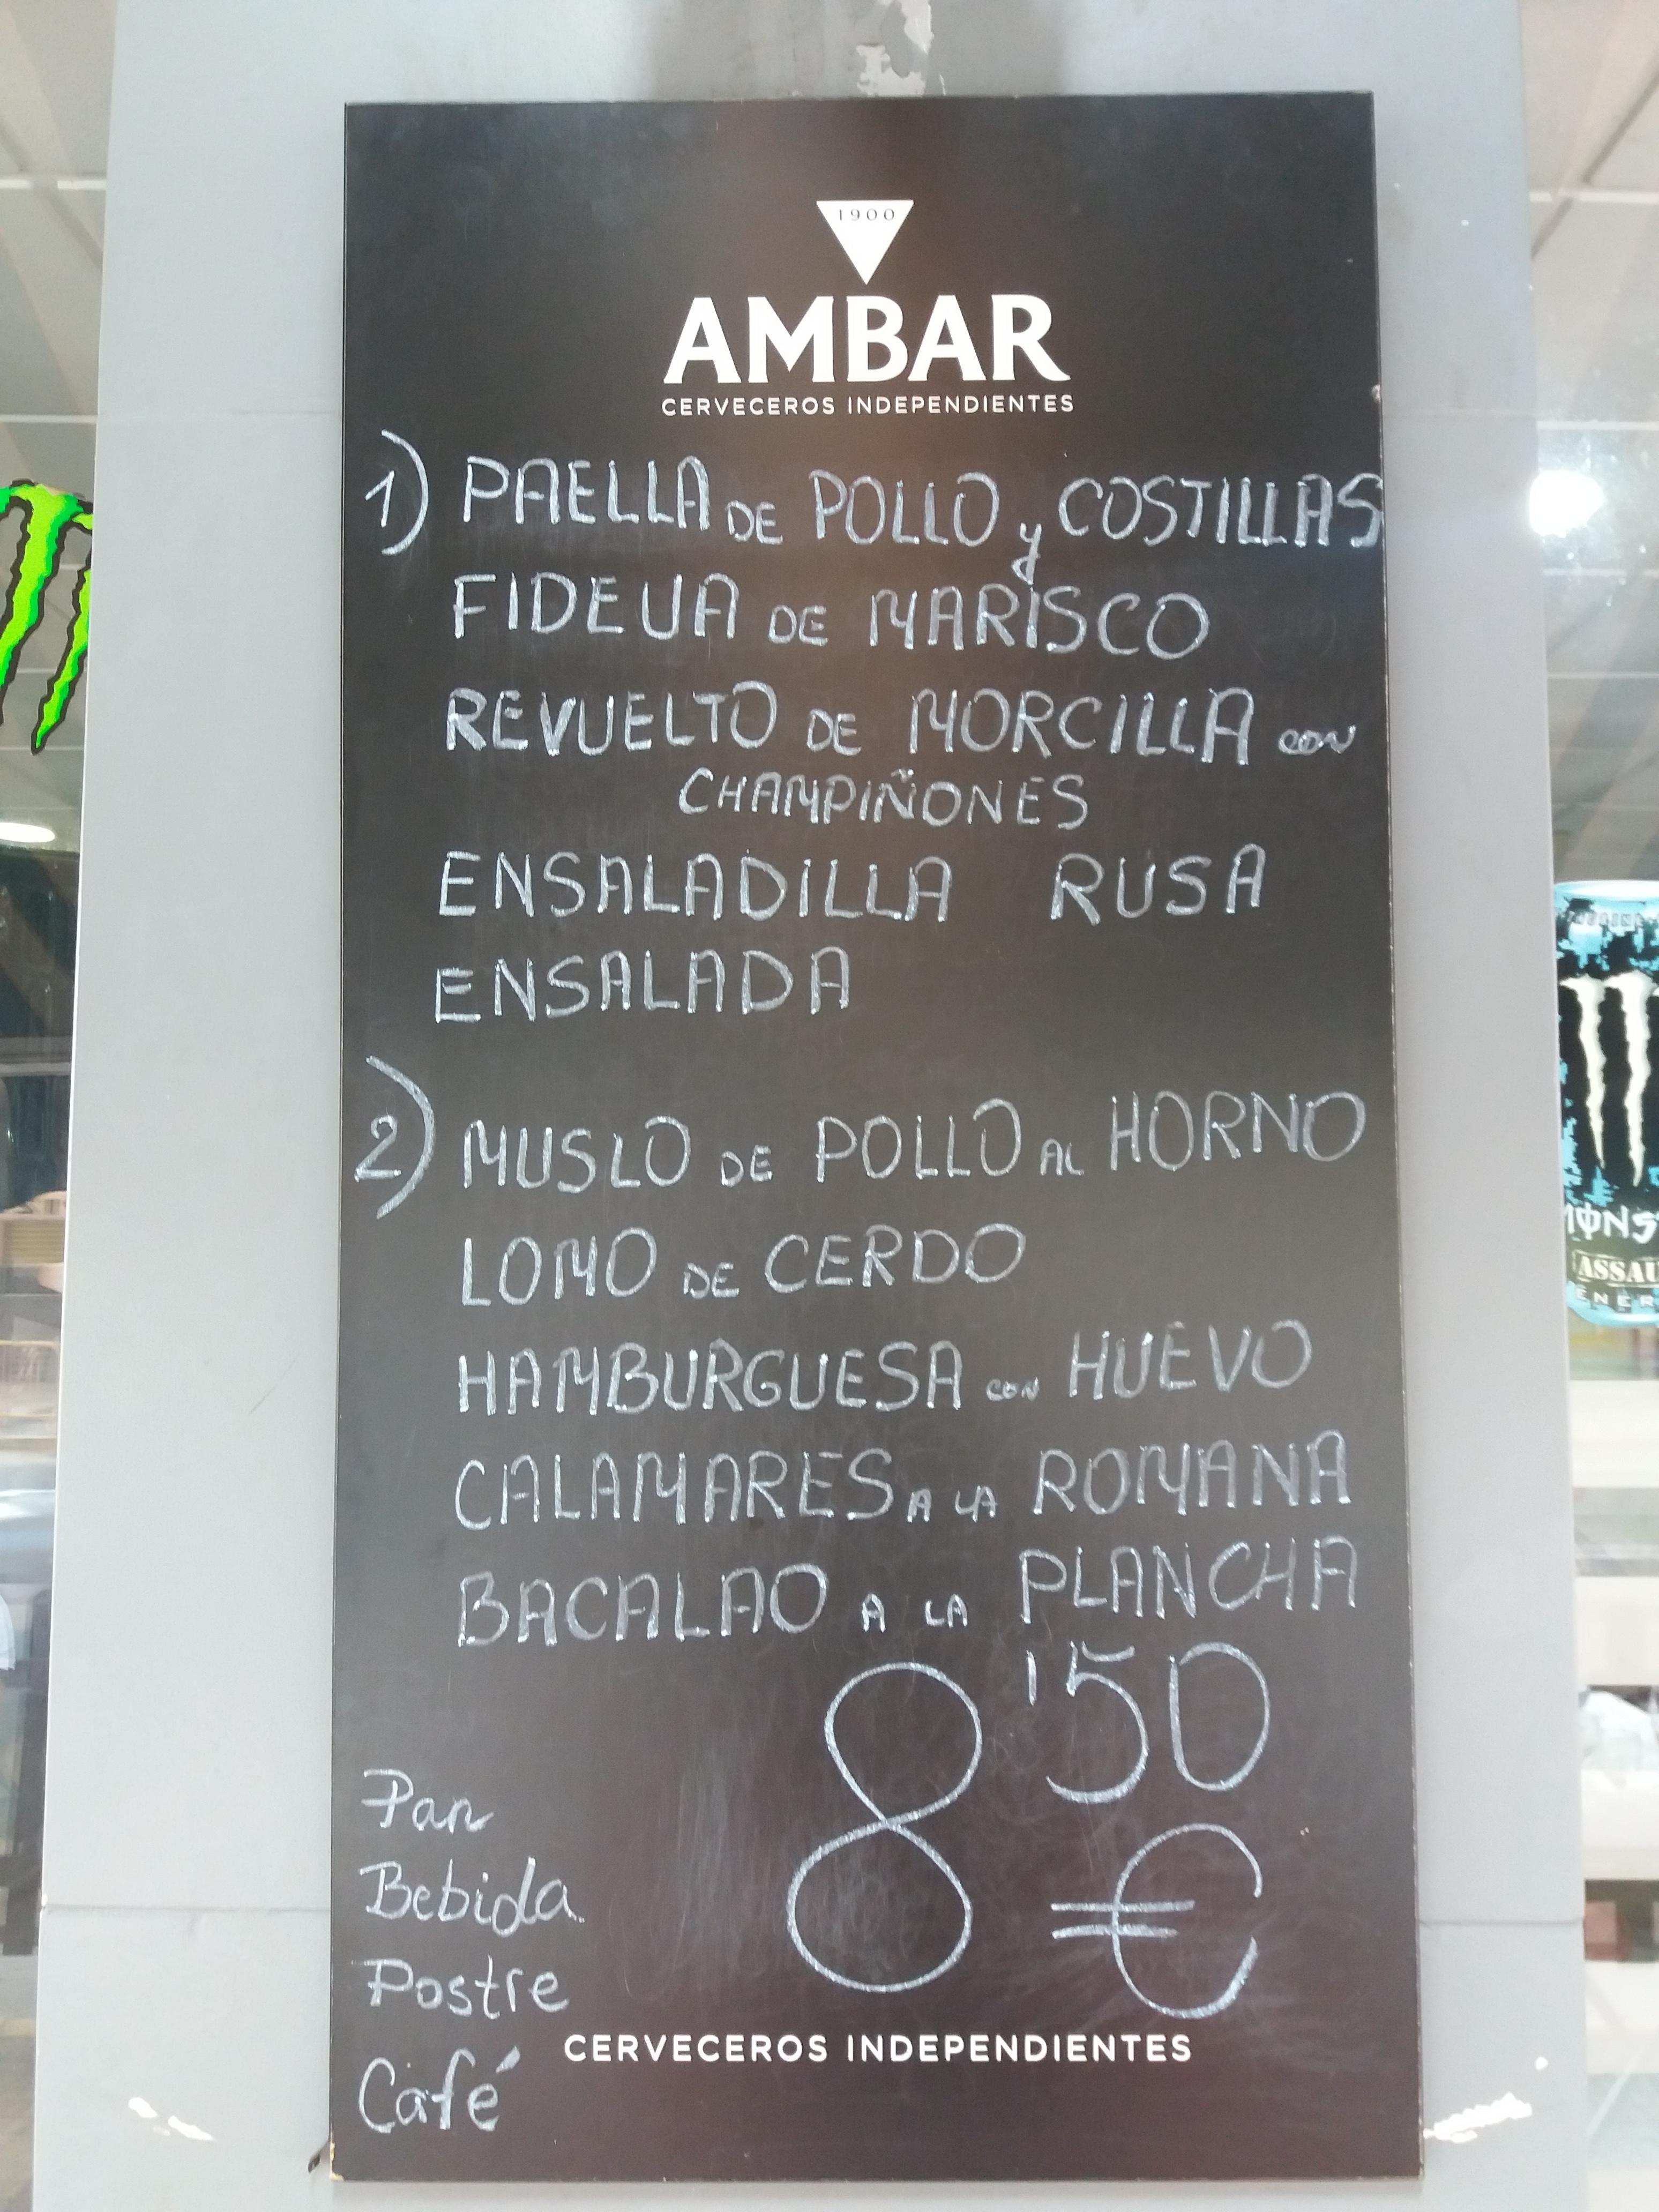 1900
AMBAR
CERVECEROS INDEPENDIENTES
1) PAELLA DE POLLO y COSTILLAS
FIDEUA DE MARISCO
REVUELTO DE MORCILLA con
CHAMPIÑONES
ENSALADILLA RUSA
ENSALADA
2) MUSLO DE POLLO AL HORNO
LOMO DE CERDO
HAMBURGUESA con HUEVO
CALAMARES A LA ROMANA
BACALAO A LA PLANCHA
8'50
€
Pan
Bebida
Postre
Café
CERVECEROS INDEPENDIENTES
MONS
ASSAU
ENER